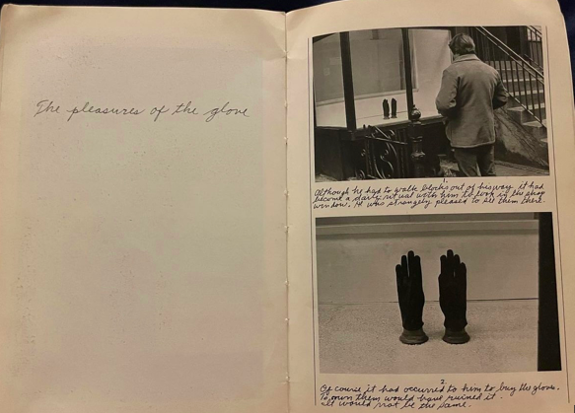 The pleasures of the glove
1.
Although he had to walk blocks out of his way, it had
become a daily ritual with him to look in the shop
window. He was strangely pleased to see them there.
2.
Of course it had occurred to him to buy the gloves.
To own them would have ruined it.
It would not be the same.